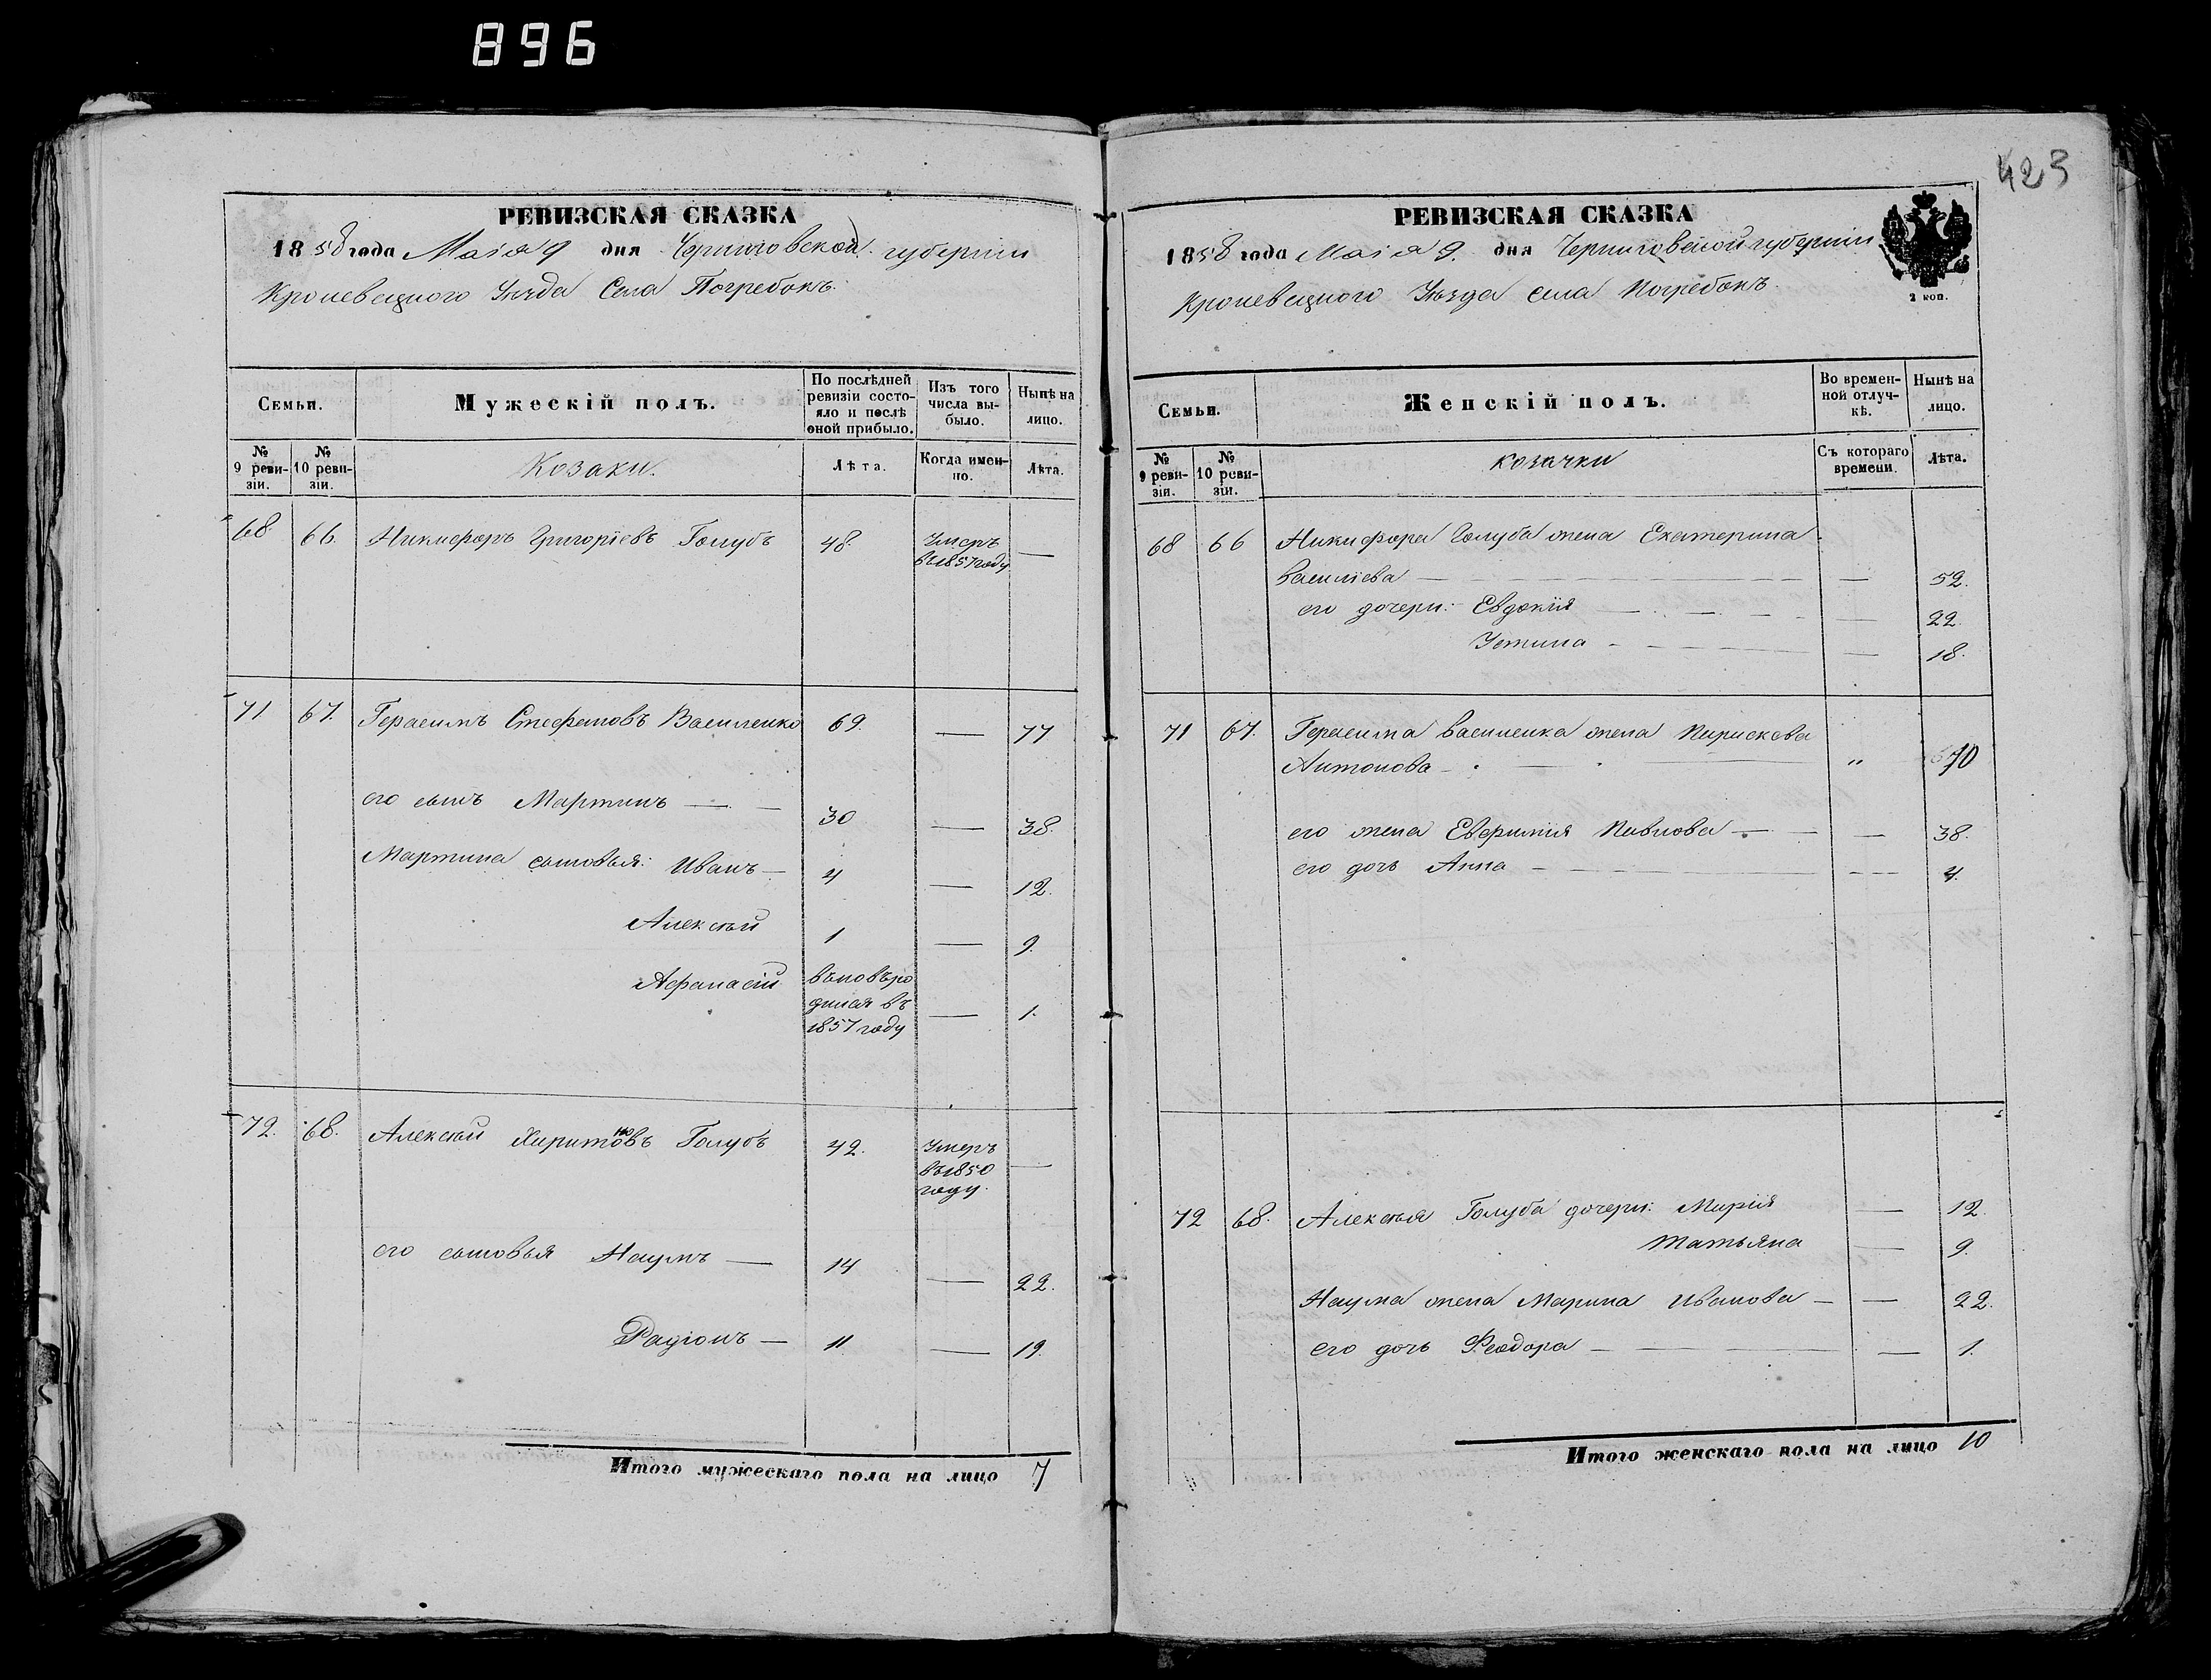 896
423
РЕВИЗСКАЯ СКАЗКА
1858 года Маія 9 дня Черниговской губерніи
Кролевецкого Уѣзда Села Погребокъ.
Семьи.
Мужескій полъ.
По послѣдней ревизіи состояло и послѣ оной прибыло.
Изъ того числа выбыло.
Нынѣ на лицо.
№ 9 ревизіи.
№ 10 ревизіи.
Козаки.
Лѣта.
Когда именно.
Лѣта.
68 66. Никифоръ Григоріевъ Голубъ 48. Умеръ въ 1857 году —
71 67. Герасимъ Стефановъ Василенко 69. — 77
его сынъ Мартинъ — — 30 — 38.
Мартина сыновья: Иванъ — 4 — 12.
Алексѣй 1 — 9.
Афанасій вновь родился въ 1857 году — 1.
72. 68. Алексѣй Харитоновъ Голубъ 42. Умеръ въ 1850 году. —
его сыновья Наумъ — 14 — 22.
Радіонъ — 11 — 19.
Итого мужескаго пола на лицо 7
РЕВИЗСКАЯ СКАЗКА
1858 года Маія 9. дня Черниговской губерніи
Кролевецкого Уѣзда села Погребокъ.
2 коп.
Семьи.
Женскій полъ.
Во временной отлучкѣ.
Нынѣ на лицо.
№ 9 ревизіи.
№ 10 ревизіи.
козачки
Съ котораго времени.
Лѣта.
68 66 Никифора Голуба жена Екатерина
Василіева — — 52.
его дочери: Евдокія — — 22.
Устина — — 18.
71 67. Герасима Василенка жена Парискева
Антонова — „ 70
его жена Евфимія Павлова — — 38.
его дочь Анна — — 4.
72 68. Алексѣя Голуба дочери: Марія — 12.
Татьяна — 9.
Наума жена Марина Иванова — — 22.
его дочь Феодора — — 1.
Итого женскаго пола на лицо 10